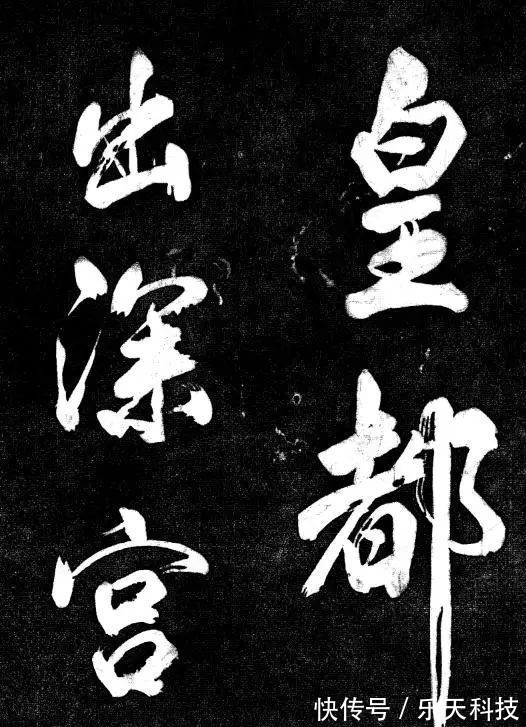 皇都
出深宫
快传号/乐天科技